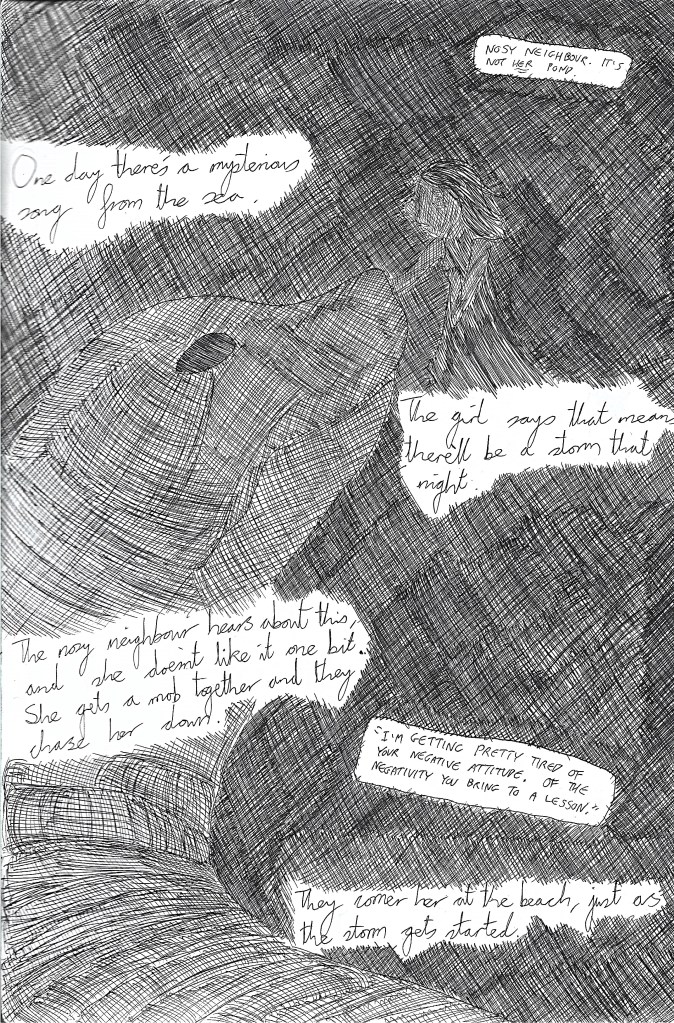 NOSY NEIGHBOUR. IT'S
NOT HER POND.
One day there's a mysterious
song from the sea.
The girl says that mean
there'll be a storm that
night.
The nosy neighbour hears about this,
and she doesn't like it one bit.
She gets a mob together and they
chase her down.
"I'M GETTING PRETTY TIRED OF
YOUR NEGATIVE ATTITUDE. OF THE
NEGATIVITY YOU BRING TO A LESSON."
They corner her at the beach, just as
the storm gets started.